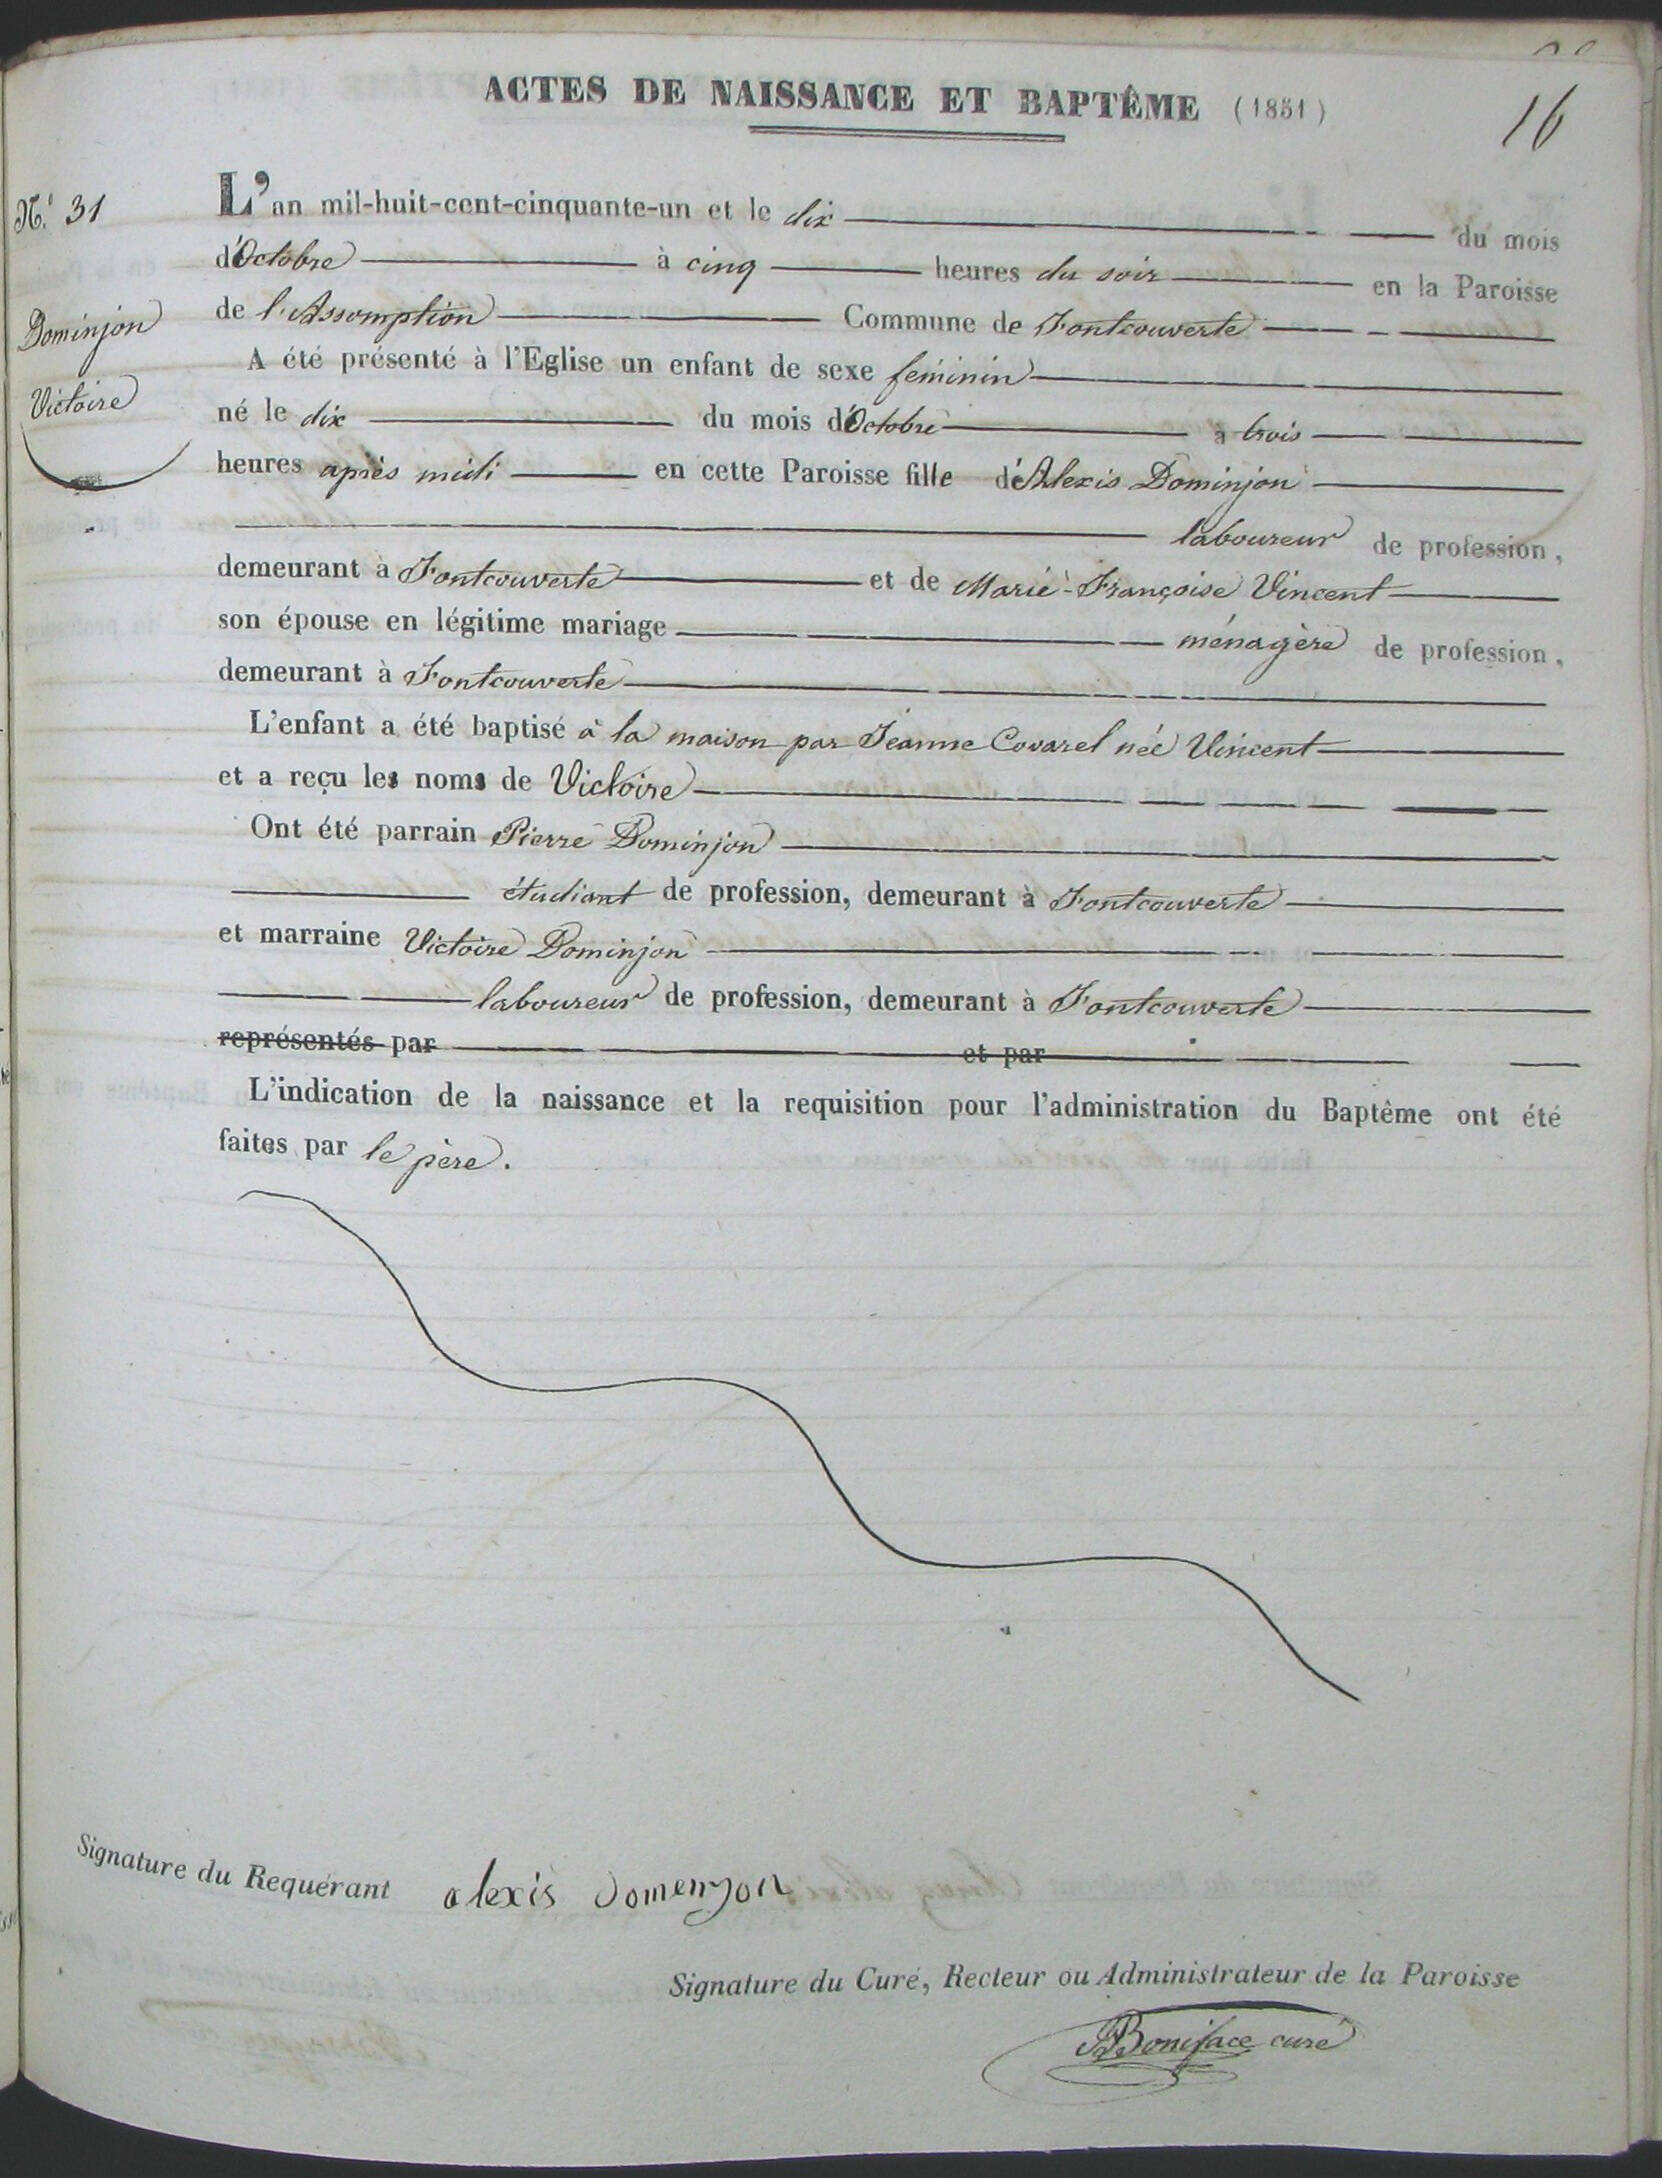 ACTES DE NAISSANCE ET BAPTÊME (1851)
16
N.° 31
Dominjon
Victoire
L'an mil-huit-cent-cinquante-un et le dix du mois
d'Octobre à cinq heures du soir en la Paroisse
de l'Assomption Commune de Fontcouverte
A été présenté à l'Eglise un enfant de sexe féminin
né le dix du mois d'Octobre à trois
heures après midi en cette Paroisse fille d'Alexis Dominjon
laboureur de profession,
demeurant à Fontcouverte et de Marie-Françoise Vincent
son épouse en légitime mariage ménagère de profession,
demeurant à Fontcouverte
L'enfant a été baptisé à la maison par Jeanne Covarel née Vincent
et a reçu les noms de Victoire
Ont été parrain Pierre Dominjon
étudiant de profession, demeurant à Fontcouverte
et marraine Victoire Dominjon
laboureur de profession, demeurant à Fontcouverte
représentés par et par
L'indication de la naissance et la requisition pour l'administration du Baptême ont été
faites par le père.
Signature du Requérant alexis domenjon
Signature du Curé, Recteur ou Administrateur de la Paroisse
Boniface curé